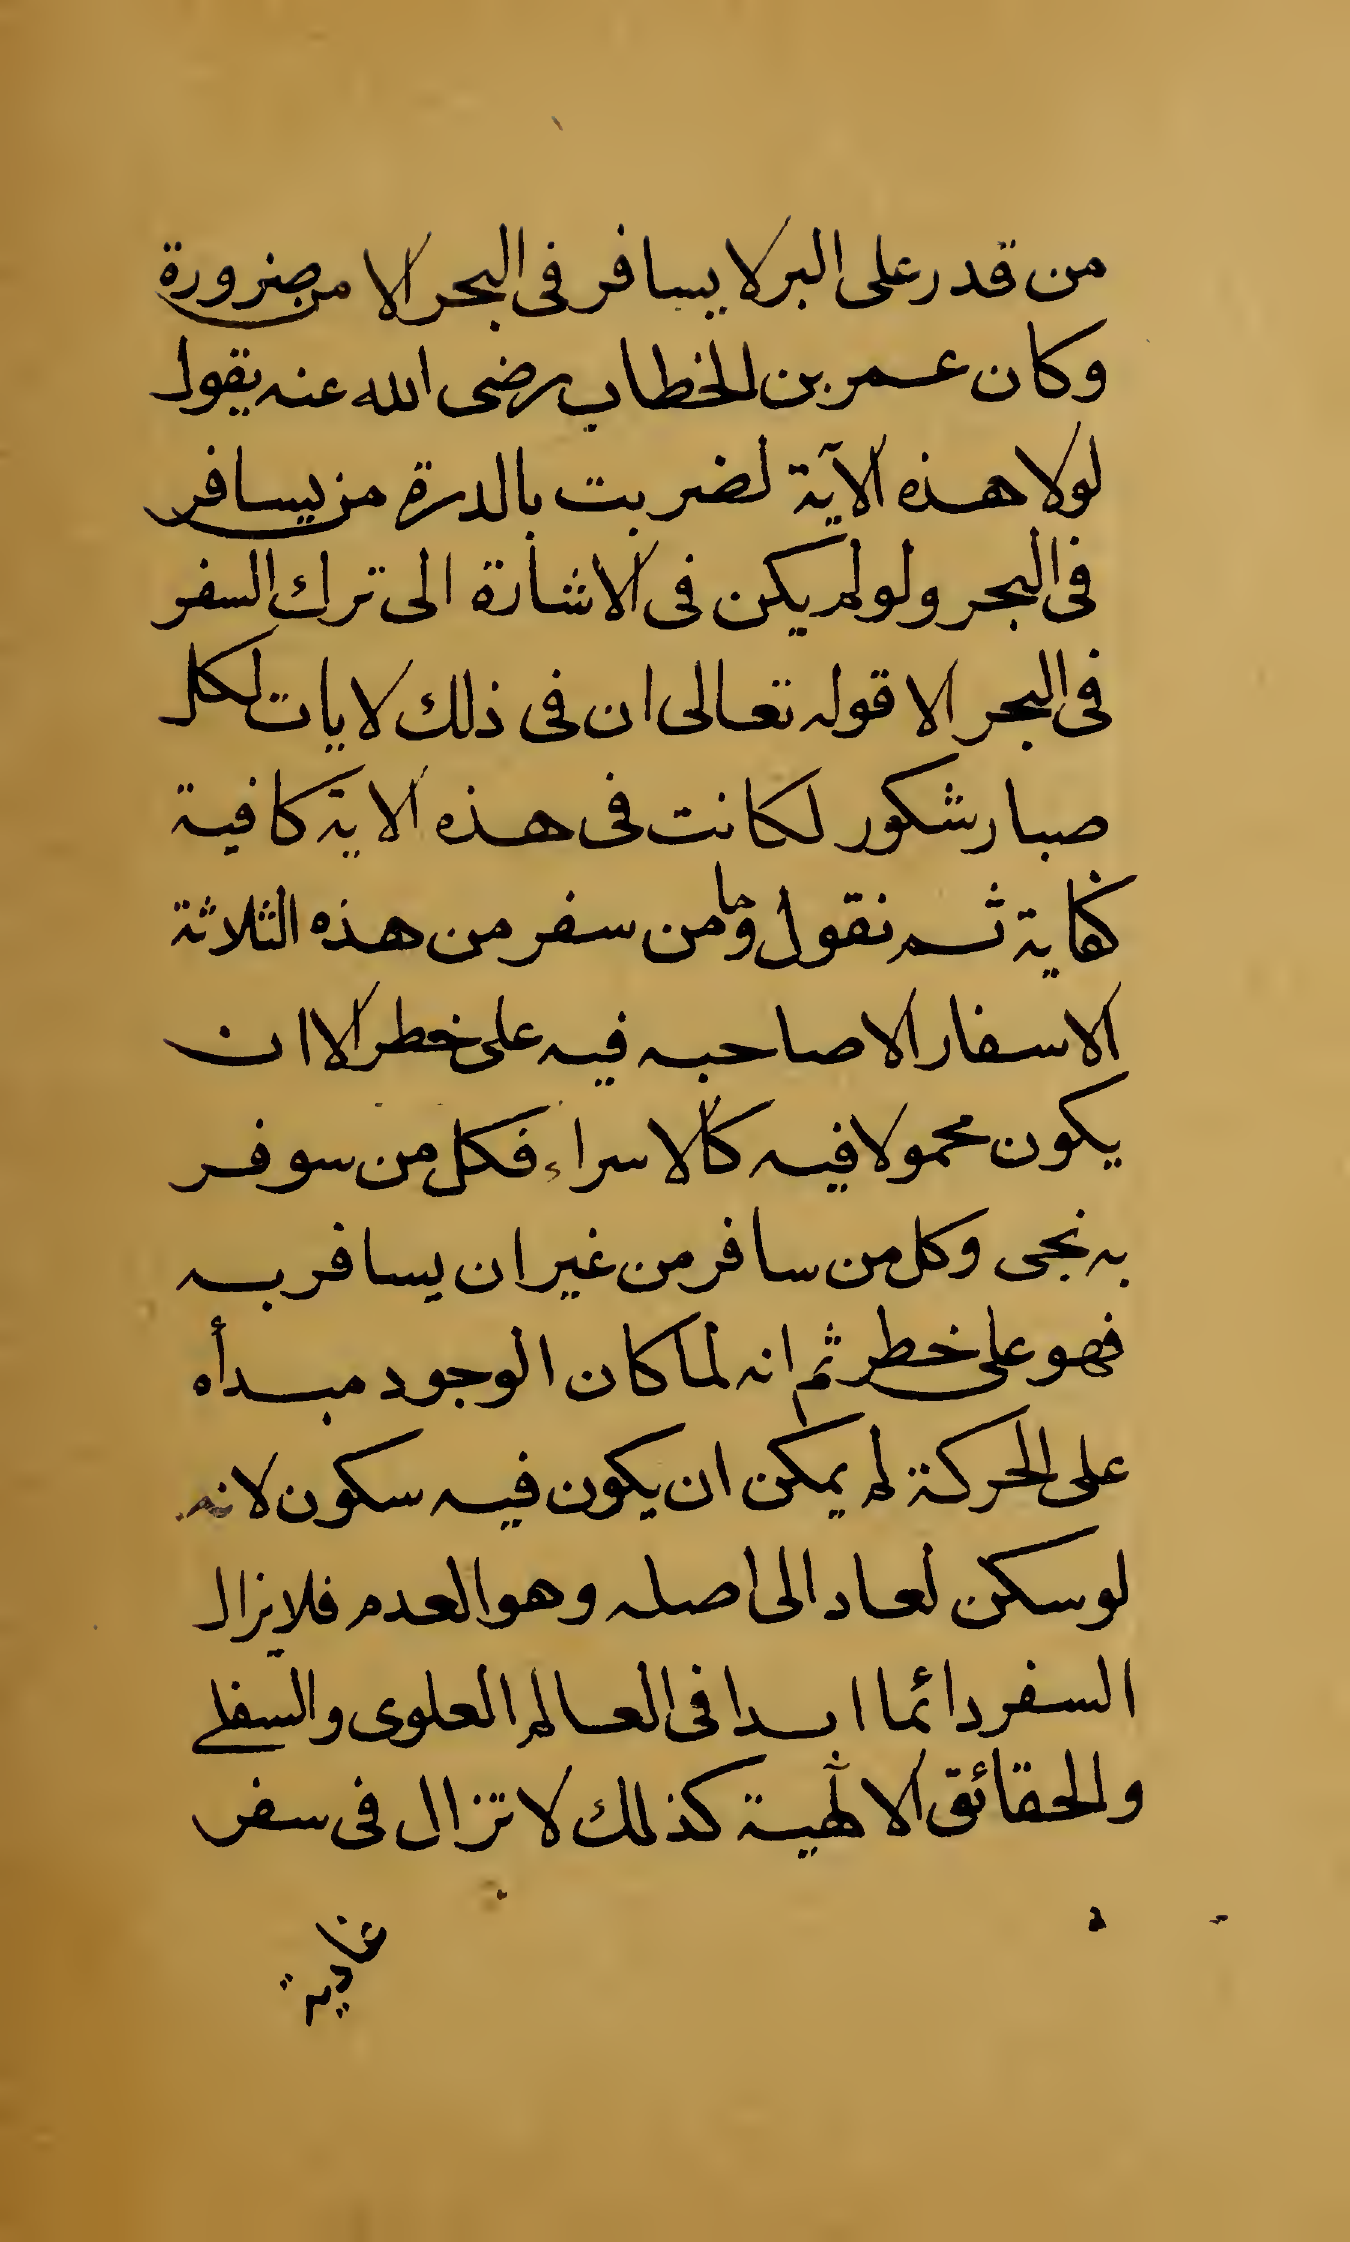 من قدر على البر لا يسافر فى البحر الا من ضرورة
وكان عمر بن الخطاب رضى الله عنه يقول
لولا هذه الآية لضربت بالدرة من يسافر
فى البحر ولو لم يكن فى الاشارة الى ترك السفر
فى البحر الا قوله تعالى ان فى ذلك لايات لكل
صبار شكور لكانت فى هذه الاية كافية
كفاية ثم نقول وما من سفر من هذه الثلاثة
الاسفار الا صاحبه فيه على خطر الا ان
يكون محمولا فيه كالاسراء فكل من سوفر
به نجى وكل من سافر من غير ان يسافر به
فهو على خطر ثم انه لما كان الوجود مبدأه
على الحركة لم يمكن ان يكون فيه سكون لانه
لو سكن لعاد الى اصله وهو العدم فلا يزال
السفر دائما ابدا فى العالم العلوى والسفلى
والحقائق الالهية كذلك لا تزال فى سفر
غادية